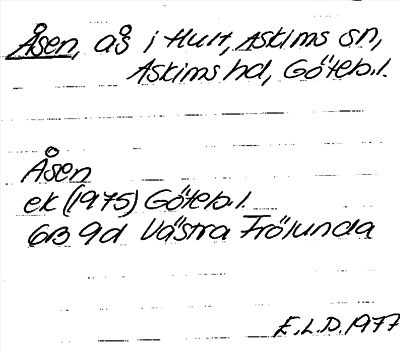 Åsen, ås i Hult, Askims sn,
Askims hd, Göteb.l.
Åsen
ek (1975) Göteb.l.
6B 9d Västra Frölunda
E.L.D. 1977